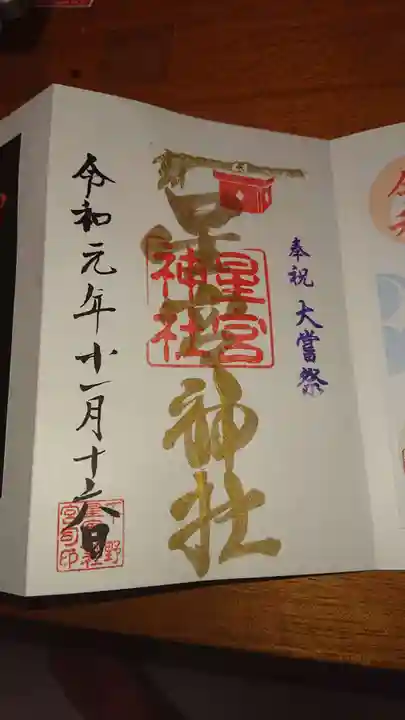 奉祝 大嘗祭
星宮神社
星宮
神社
令和元年十一月十六日
下野
星宮神社
宮司印